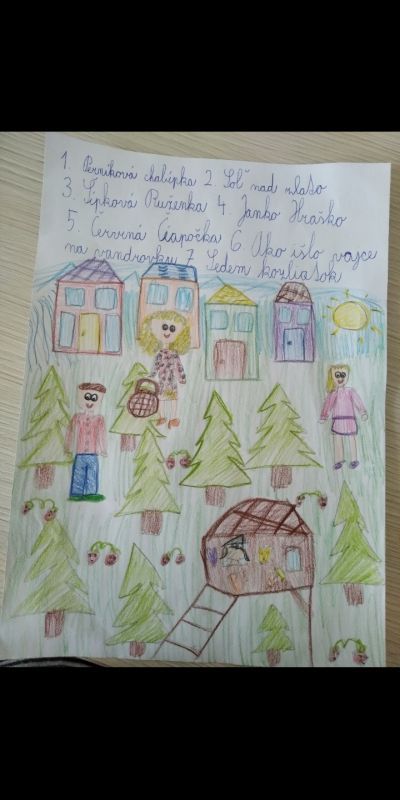 1. Perníková chalúpka 2. Soľ nad zlato
3. Šípková Ruženka 4. Janko Hraško
5. Červená Čiapočka 6. Ako išlo vajce
na vandrovku 7. Sedem kozliatok